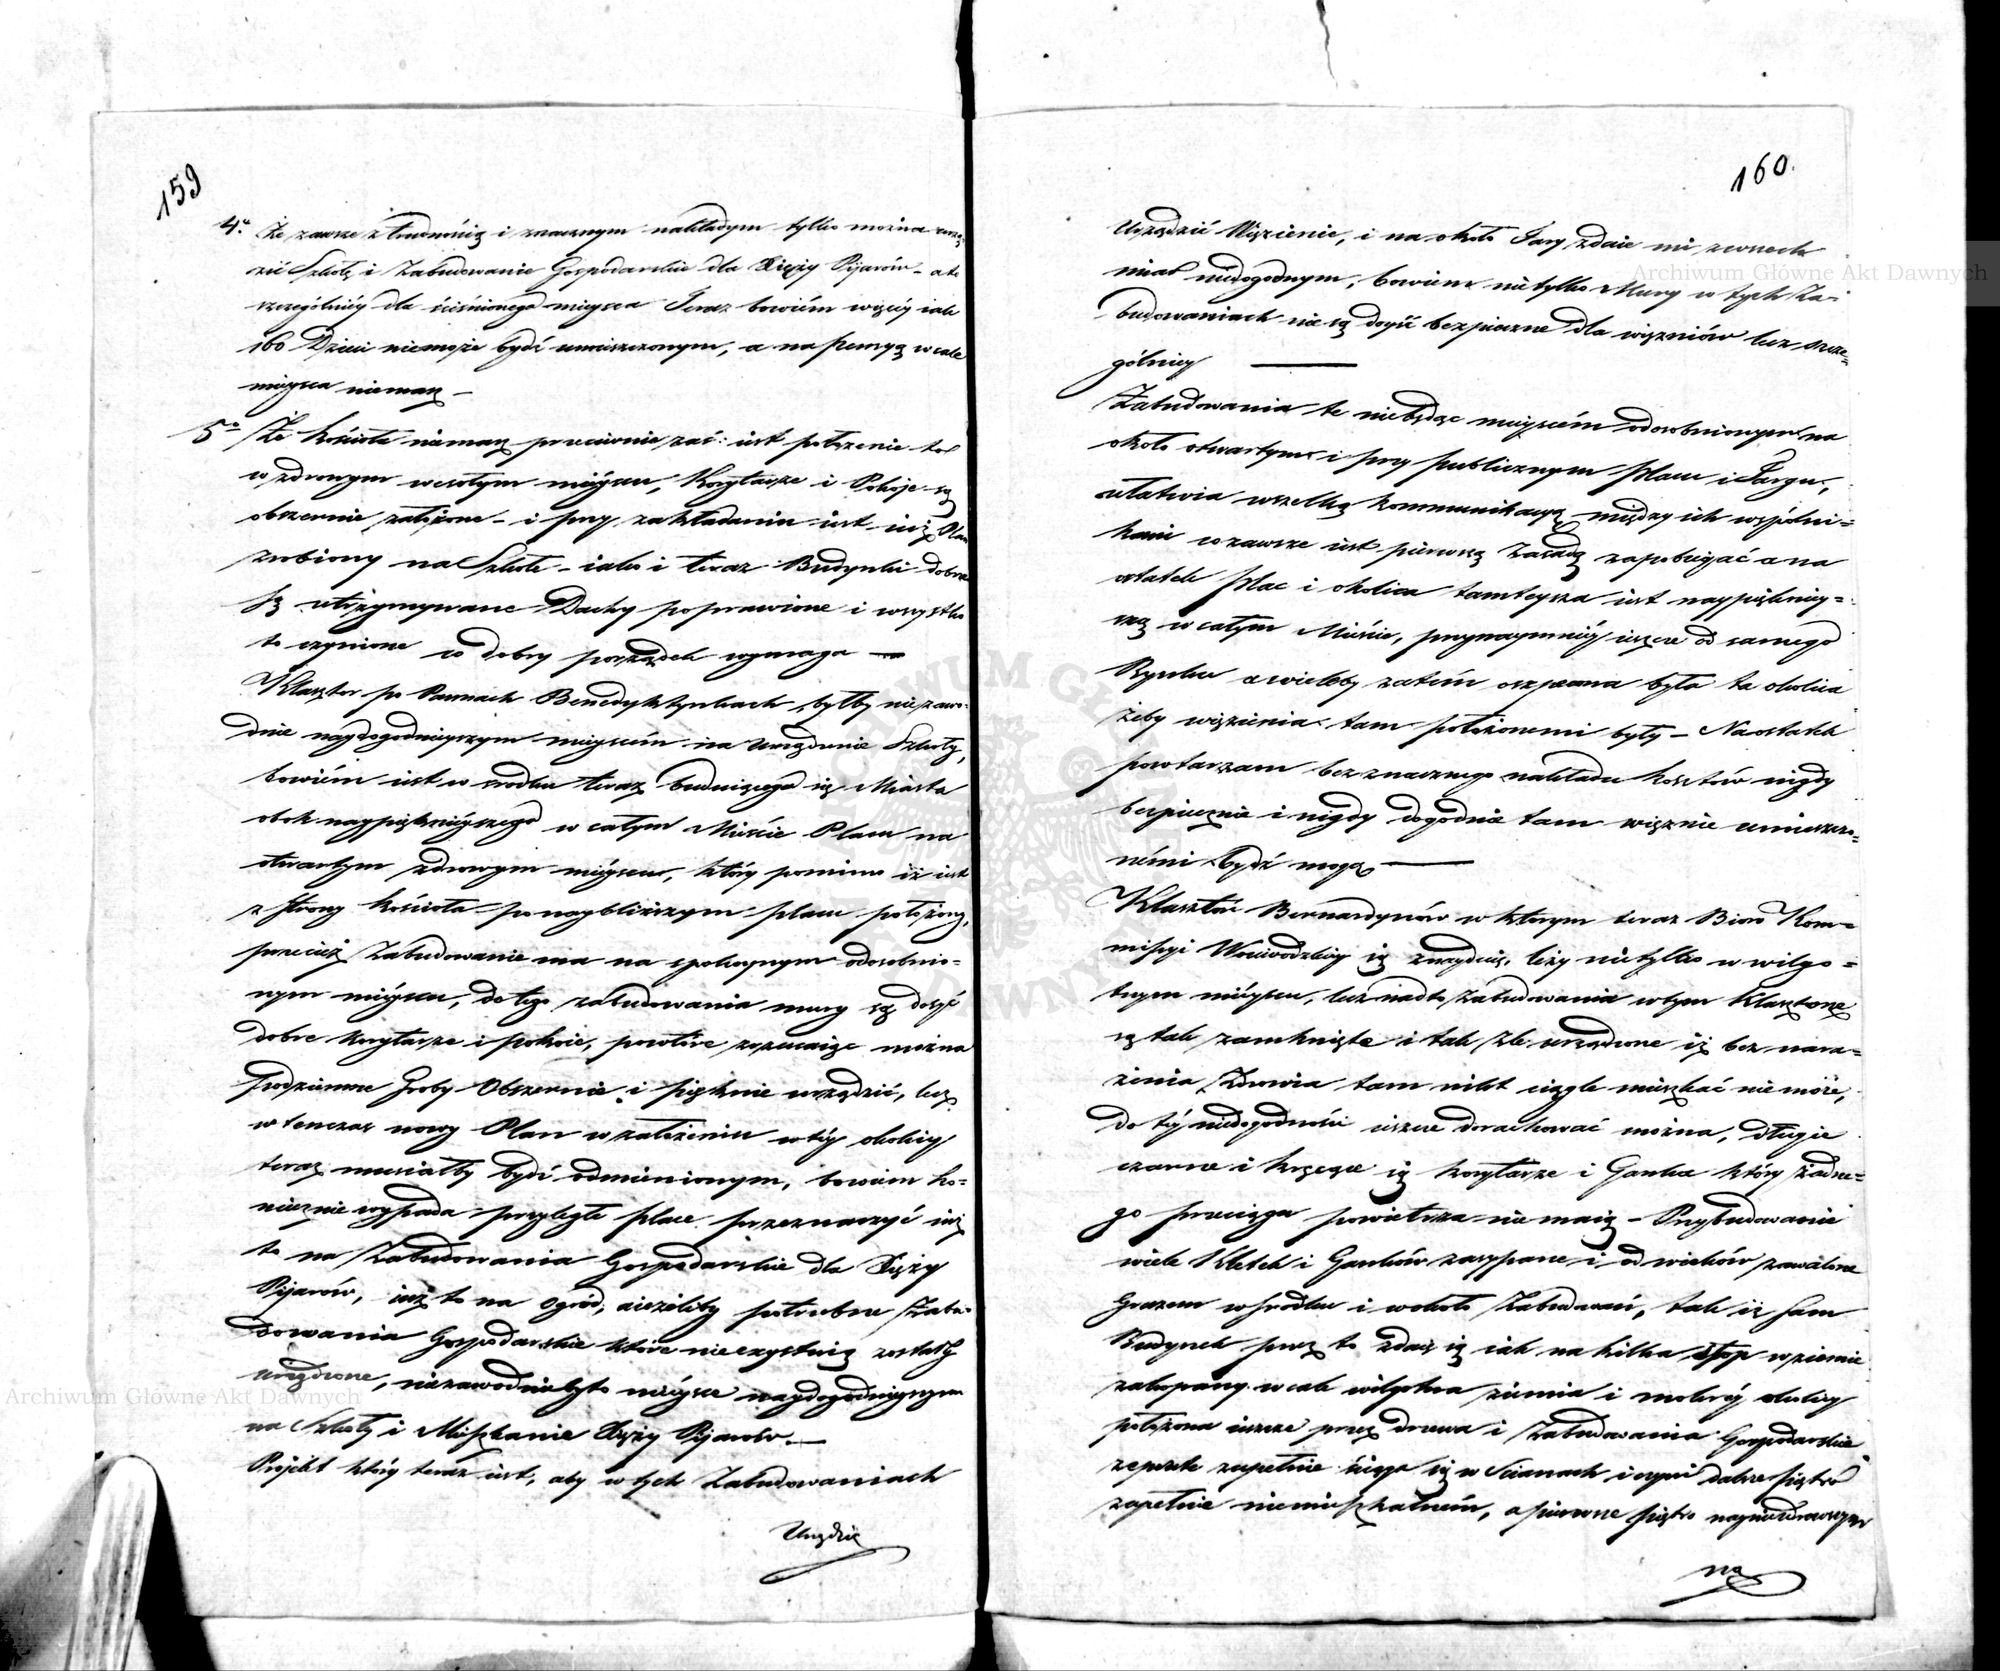 159
4.° Że zawsze z trudnością i znacznym nakładym tylko można urzą
dzić Szkołę i Zabudowanie Gospodarskie dla Xięży Pijarów - a to
szczególniéy dla ścisnionego mieysca Teraz bowiém więcéy iak
160 Dzieci niemoże bydź umieszczonym, a na pensyą wcale
mieysca niemasz -
5° Że Kościoła niemasz przeciwnie zaś: iest położenie to
w zdrowym wesołym mieyscu, Korytarze i Pokoje są
obszernie założone - i przy zakładaniu iest iuż Plan
zrobiony na Szkołe - iako i teraz Budynki dobrze
są utrzymywane Dachy poprawione i wszystko
to czynione co dobry porządek wymaga —
Klasztor po Pannach Benedyktynkach byłby niezawo-
dnie naydogodnieyszym mieyscém na urządzenie Szkoły,
bowiém iest w srodku teraz buduiącego się Miasta
obok naypięknieyszego w całym Mieście Placu na
otwartym zdrowym mieyscu, który pomimo iż iest
z strony kościoła po naybliższym placu położony,
przecież Zabudowanie ma na spokoynym odosobnio-
nym mieyscu, do tego zabudowania mury są dosyć
dobre korytarze i pokoie, powtóre zarzucaiąc można
podziemne Groby Obszernie i pięknie urządzić, lecz
wtenczas nowy Plan w założeniu w téy okolicy
teraz musiałby bydź odmienionym, bowiem ko-
niecznie wypada przyległe place przeznaczyć iuż
to na Zabudowania Gospodarskie dla Xięży
Pijarów, iuż to na ogród, ieżeliby potrzebne Zabu-
dowania Gospodarskie które nieczystnią zostały
urządzone, niezawodnie było mieysce naydogodnieyszym
na Szkoły i Mieszkanie Xięży Pijarów. —
Projekt który teraz iest, aby w tych Zabudowaniach
Urządzić
160.
Urządzić Więzienie, i na około Fasy zdaie mi
niedogodnym, bowiem nietylko Mury w tych Za-
budowaniach nie są dosyć bezpieczne dla więzniów lecz szcze-
gólniey —
Zabudowania te niebędąc mieyscém odosobnionym na
około otwartym i przy publicznym placu i Targu,
ułatwia wszelką kommunikacyą między ich wspólni-
kami co zawsze iest pierwszą Zasadą zapobiegać a na
ostatek Plac i okolica tamteysza iest naypięknieÿ-
szą w całym Mieście, przynaymniéy ieszcze od samego
Rynku a wieleby zatém oszpecona była ta okolica
żeby więzienia tam położonemi były - Naostatek
powtarzam bez znacznego nakładu kosztów nigdy
bezpiecznie i nigdy dogodnie tam więznie umieszczo-
némi bydź mogą —
Klasztór Bernardynów w którym teraz Biuro Kom-
missyi Woiewódzkiéy się znayduie, leży nietylko w wilgo-
tnym mieyscu, lecz nadto Zabudowania w tym Klasztorze
są tak zamknięte i tak źle urządzone iż bez nara-
żenia Zdrowia tam nikt ciągle mieszkać nie może,
do téy niedogodności ieszcze dorachować można, długie
czarne i kręcące się korytarze i Ganki który żadne-
go przeciągu powietrza nie maią - Przybudowanie
wiele Klatek i Ganków zasypane i od wieków zawalone
Gruzem w środku i wokoło Zabudowań, tak iż sam
Budynek przez to zdaie się iak na kilka stop w ziemie
zakopany wcale wilgotna ziemia i mokréy okolicy
położona ieszcze przez drzewa i Zabudowania Gospodarskie
zepsute zupełnie się w Scianach, i czyni dalsze piętro
zupełnie niemieszkalném, a pierwsze piętro nayniezdrowszym
na
Archiwum Główne Akt Dawnych
Archiwum Główne Akt Dawnych